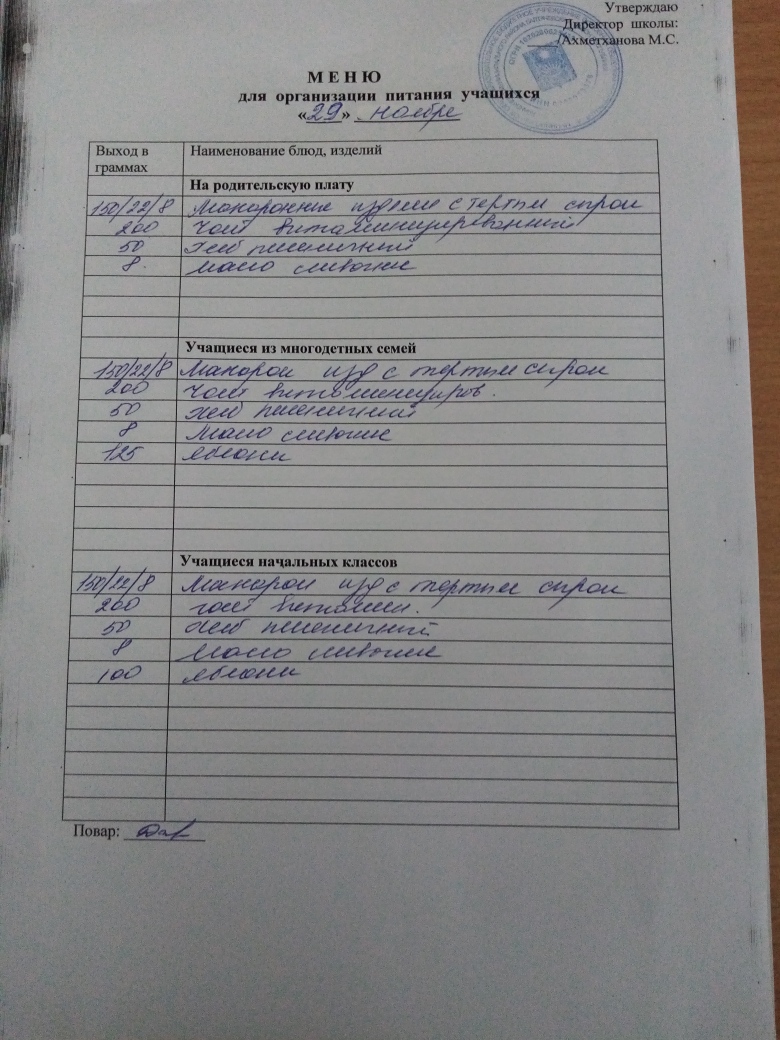 Утверждаю
Директор школы:
/Ахметханова М.С.
М Е Н Ю
для организации питания учащихся
«29» ноября
Выход в граммах Наименование блюд, изделий
На родительскую плату
150/22/8 Макаронные изделие с тертым сыром
200 Чай витаминизированный
50 Хлеб пшеничный
8. масло сливочне
Учащиеся из многодетных семей
150/22/8 Макарон изд с тертым сыром
200 Чай витаминизиров.
50 хлеб пшеничний
8 Масло сливочне
125 яблоки
Учащиеся начальных классов
150/22/8 Макарон изд с тертым сыром
200 чай витамин.
50 хлеб пшеничный
8 Масло сливочне
100 яблоки
Повар: